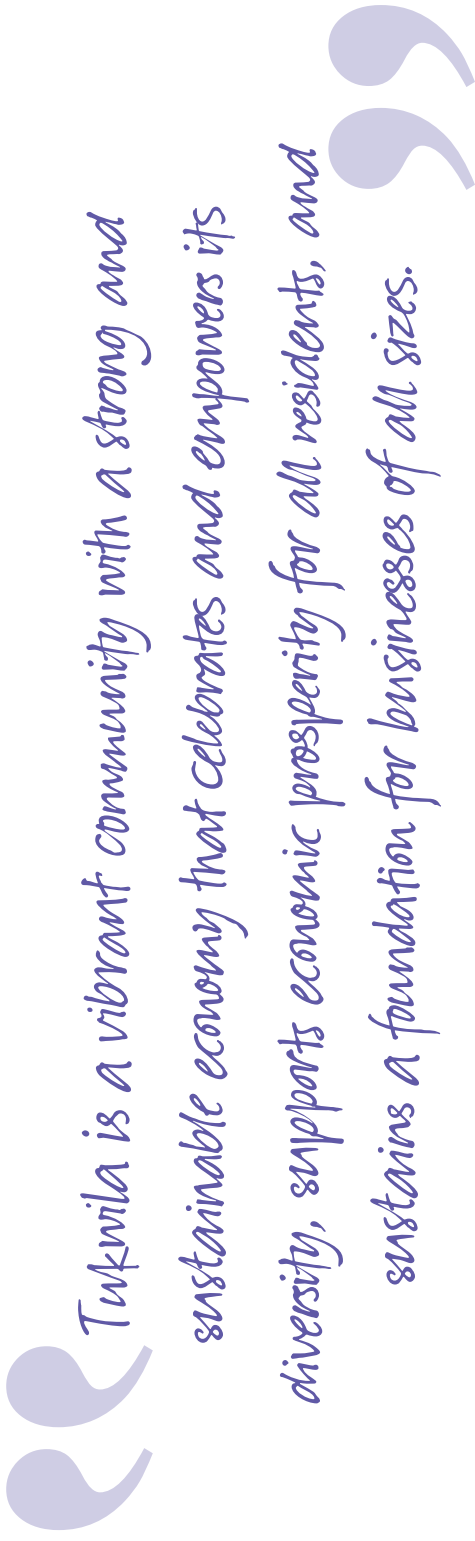 “
Tukwila is a vibrant community with a strong and
sustainable economy that celebrates and empowers its
diversity, supports economic prosperity for all residents, and
sustains a foundation for businesses of all sizes.
”